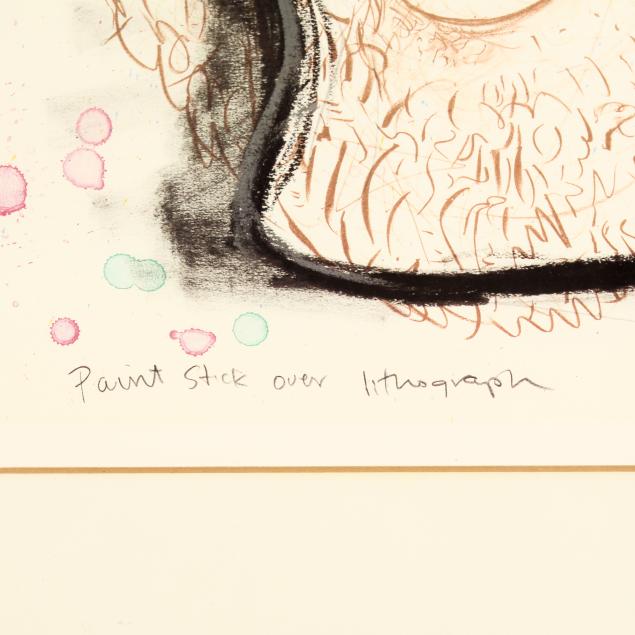 Paint Stick over lithograph